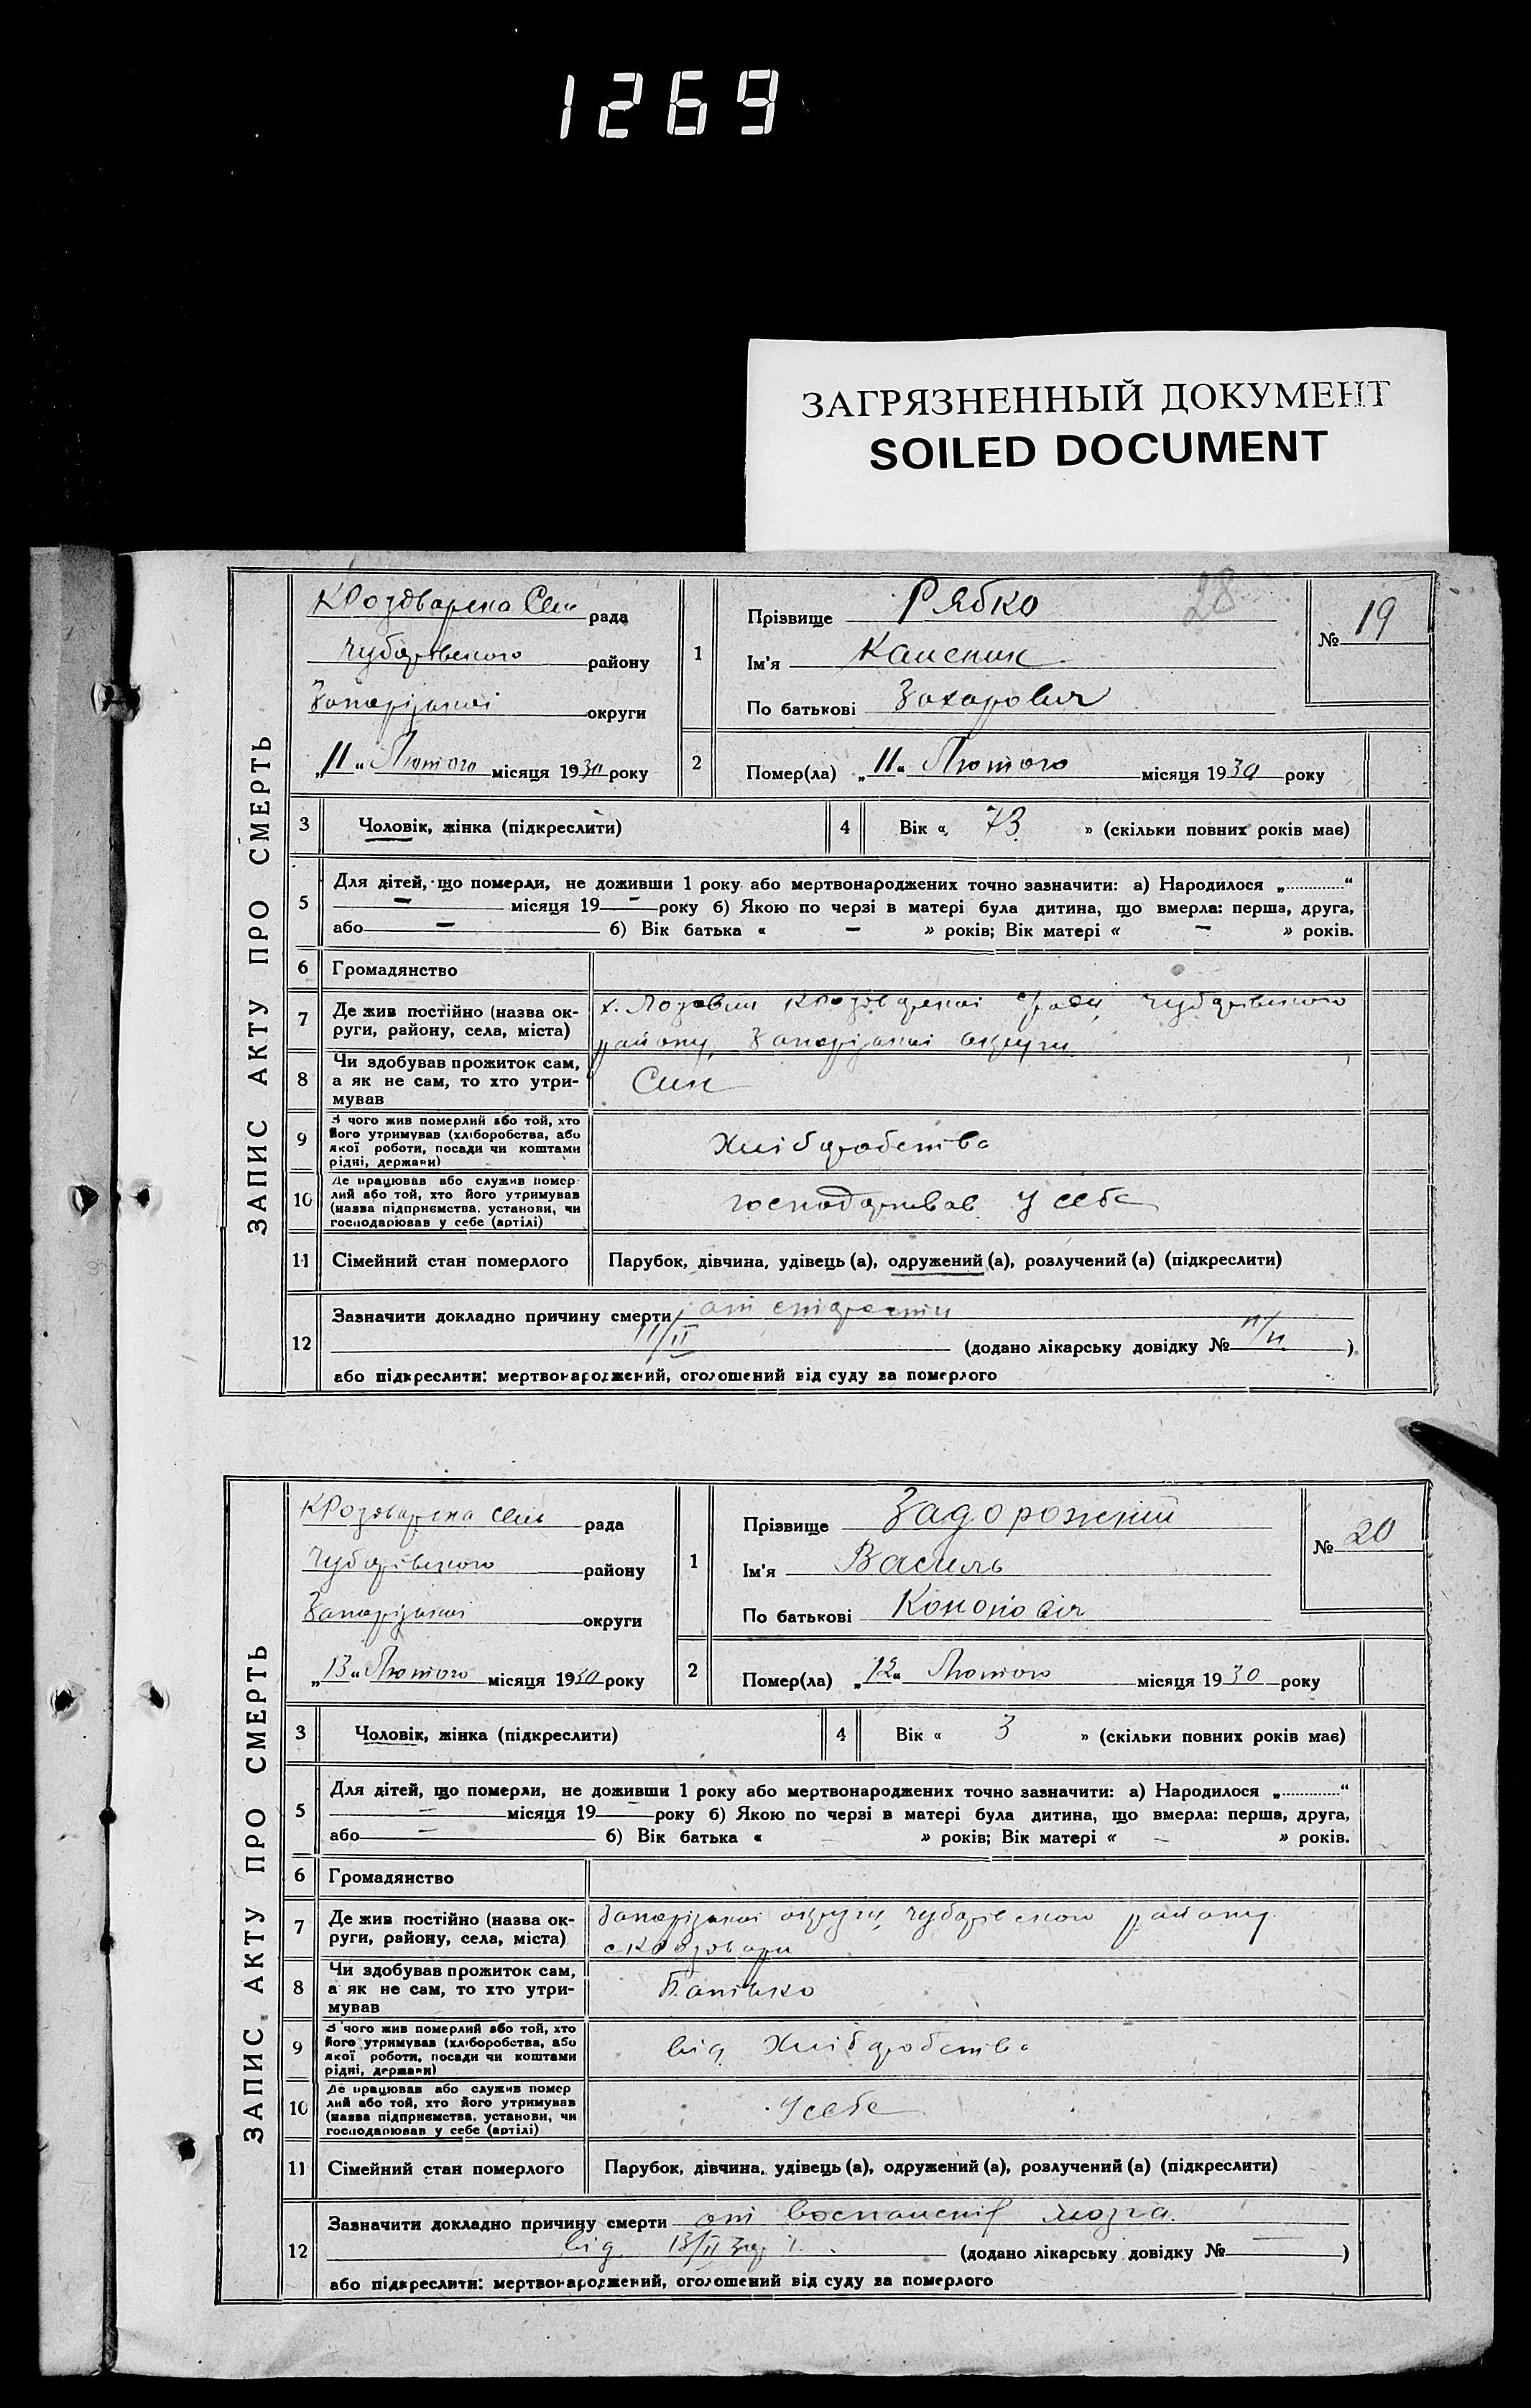 1269
ЗАГРЯЗНЕННЫЙ ДОКУМЕНТ
SOILED DOCUMENT
28
ЗАПИС АКТУ ПРО СМЕРТЬ
рада
Чубарівського району
Запорізької округи
„11" Лютого місяця 1930 року
1 Прізвище Рябко
Ім'я
По батькові Захарович
№ 19
2 Помер(ла) „11" Лютого місяця 1930 року
3 Чоловік, жінка (підкреслити)
4 Вік « 73 » (скільки повних років має)
5 Для дітей, що померли, не доживши 1 року або мертвонароджених точно зазначити: а) Народилося „ "
— місяця 19 — року б) Якою по черзі в матері була дитина, що вмерла: перша, друга,
або — б) Вік батька « — » років; Вік матері « — » років.
6 Громадянство
7 Де жив постійно (назва ок-
руги, району, села, міста)
х. Чубарівського
району, Запорізької округи
8 Чи здобував прожиток сам,
а як не сам, то хто утри-
мував
Син
9 З чого жив померлий або той, хто
його утримував (хліборобства, або
якої роботи, посади чи коштами
рідні, держави)
Хліборобства
10 Де працював або служив помер-
лий або той, хто його утримував
(назва підприємства, установи, чи
господарював у себе (артілі)
господарював у себе
11 Сімейний стан померлого
Парубок, дівчина, удівець (а), одружений (а), розлучений (а) (підкреслити)
12 Зазначити докладно причину смерти от
11/II (додано лікарську довідку № )
або підкреслити: мертвонароджений, оголошений від суду за померлого
ЗАПИС АКТУ ПРО СМЕРТЬ
рада
Чубарівського району
Запорізької округи
„13" Лютого місяця 1930 року
1 Прізвище Задорожний
Ім'я Василь
По батькові Кононовіч
№ 20
2 Помер(ла) „12" Лютого місяця 1930 року
3 Чоловік, жінка (підкреслити)
4 Вік « 3 » (скільки повних років має)
5 Для дітей, що померли, не доживши 1 року або мертвонароджених точно зазначити: а) Народилося „ "
— місяця 19 — року б) Якою по черзі в матері була дитина, що вмерла: перша, друга,
або — б) Вік батька « — » років; Вік матері « — » років.
6 Громадянство
7 Де жив постійно (назва ок-
руги, району, села, міста)
Запорізької округи Чубарівського району
8 Чи здобував прожиток сам,
а як не сам, то хто утри-
мував
Батько
9 З чого жив померлий або той, хто
його утримував (хліборобства, або
якої роботи, посади чи коштами
рідні, держави)
від Хліборобства
10 Де працював або служив помер
лий або той, хто його утримував
(назва підприємства, установи, чи
господарював у себе (артілі)
У себе
11 Сімейний стан померлого
Парубок, дівчина, удівець (а), одружений (а), розлучений (а) (підкреслити)
12 Зазначити докладно причину смерти от мозга.
від 13/II (додано лікарську довідку № — )
або підкреслити: мертвонароджений, оголошений від суду за померлого